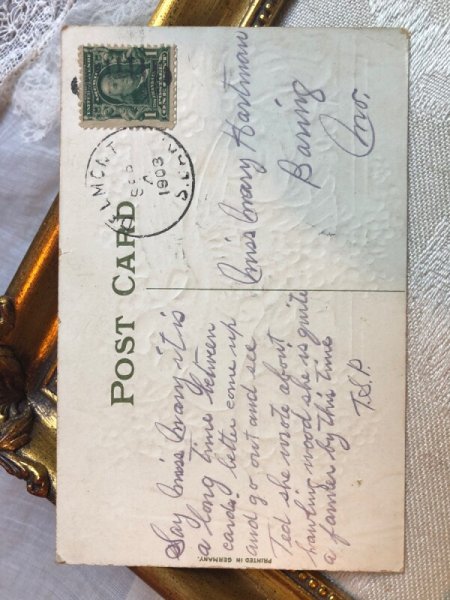 POST CARD
Say Miss Mary it is
a long time between
cards. letter come up
and go out and see
Ted she wrote about
hauling wood she is quite
a farmer by this time
T.S.P.
1903
Miss Mary Hartman
Baring
Mo.
PRINTED IN GERMANY.